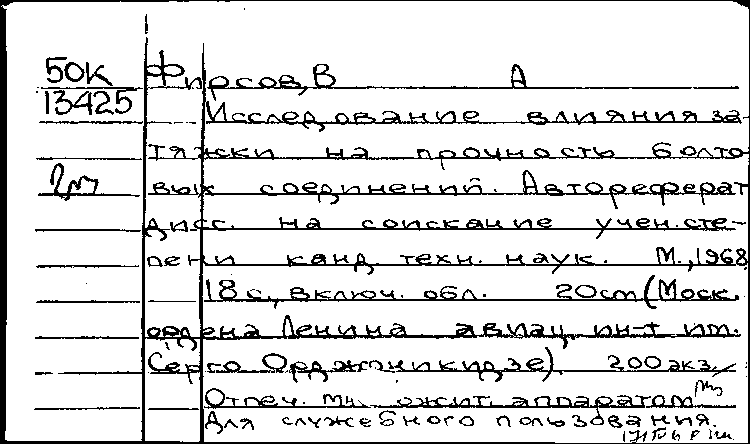 50к Фирсов, В А
13425 Исследование влияния за-
тяжки на прочность болто
вых соединений. Автореферат
дисс. на соискание учен. сте-
пени канд. техн. наук. М., 1968
18 с., включ. обл. 20 cm (Моск.
ордена Ленина авиац. ин-т им.
Серго Орджоникидзе). 200 экз.
Отпеч. множит. аппаратом
Для служебного пользования.